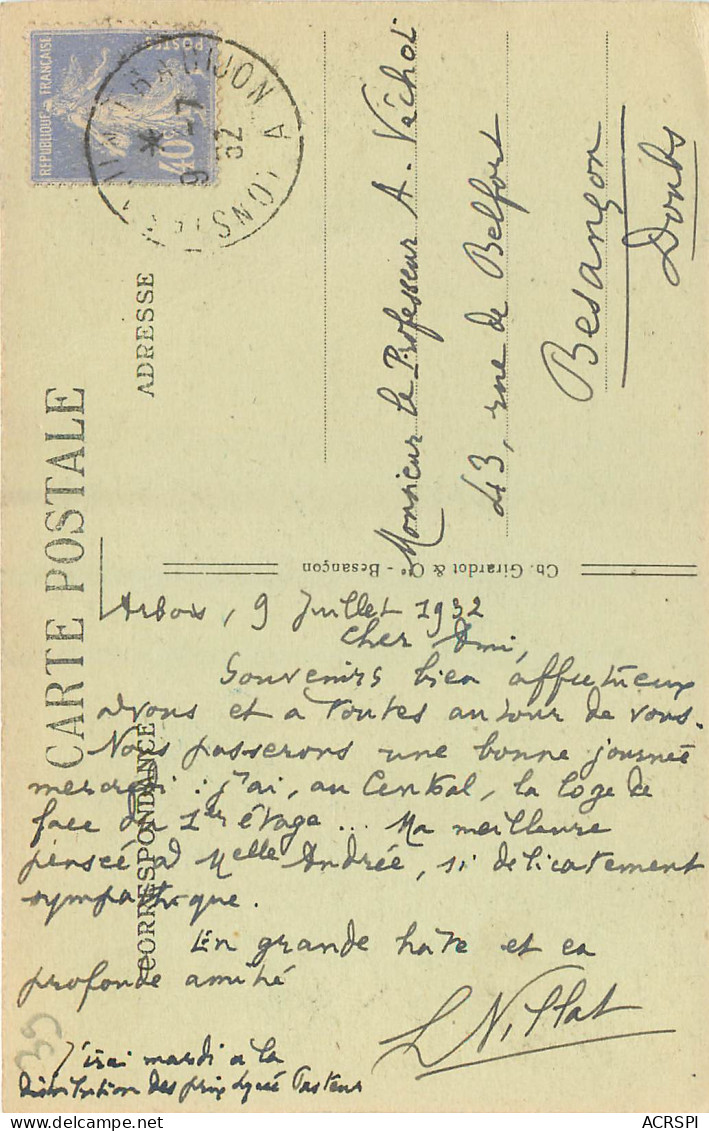 CARTE POSTALE
CORRESPONDANCE
ADRESSE
RÉPUBLIQUE FRANÇAISE
POSTES
40
DIJON A
9 -7
32
Ch. Girardot & Cie - Besançon
Monsieur le Professeur A. Véchot
43, rue de Belfort
Besançon
Doubs
Arbois, 9 Juillet 1932
Cher Ami,
Souvenirs bien affectueux
à vous et à toutes autour de vous.
Nous passerons une bonne journée
mercredi : j'ai, au Central, la loge de
face du 1er étage ... Ma meilleure
pensée à Melle Andrée, si délicatement
sympathique.
En grande hâte et en
profonde amitié
J'irai mardi à la
distribution des prix Lycée Pasteur
39
ACRSPI